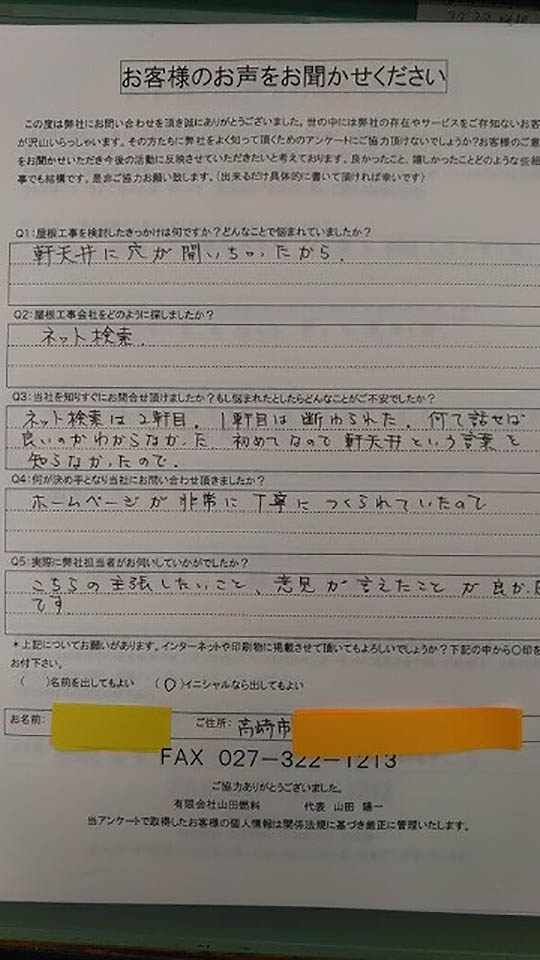 お客様のお声をお聞かせください
この度は弊社にお問い合わせを頂き誠にありがとうございました。世の中には弊社の存在やサービスをご存知ないお客
が沢山いらっしゃいます。その方たちに弊社をよく知って頂くためのアンケートにご協力頂けないでしょうか?お客様のご意
をお聞かせいただき今後の活動に反映させていただきたいと考えております。良かったこと、嬉しかったことどのような些細
事でも結構です。是非ご協力お願い致します。(出来るだけ具体的に書いて頂ければ幸いです)
Q1:屋根工事を検討したきっかけは何ですか?どんなことで悩まれていましたか?
軒天井に穴が開いちゃったから.
Q2:屋根工事会社をどのように探しましたか?
ネット検索.
Q3:当社を知りすぐにお問合せ頂けましたか?もし悩まれたとしたらどんなことがご不安でしたか?
ネット検索は2軒目. 1軒目は断わられた. 何て話せば
良いのかわからなかった 初めてなので軒天井という言葉を
知らなかったので.
Q4:何が決め手となり当社にお問い合わせ頂きましたか?
ホームページが非常に丁寧につくられていたので
Q5:実際に弊社担当者がお伺いしていかがでしたか?
こちらの主張したいこと、意見が言えたことが良か
です
*上記についてお願いがあります。インターネットや印刷物に掲載させて頂いてもよろしいでしょうか?下記の中から○印を
お付下さい。
( )名前を出してもよい (○)イニシャルなら出してもよい
お名前: ご住所: 高崎市
FAX 027-322-1213
ご協力ありがとうございました。
有限会社山田燃料 代表 山田 陽一
当アンケートで取得したお客様の個人情報は関係法規に基づき厳正に管理いたします。